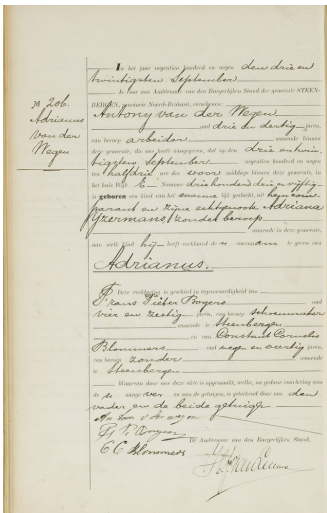 No 206.
Adrianus
van der
Wegen
In het jaar negentien honderd en negen den drie en
twintigsten September
is voor ons Ambtenaar van den Burgerlijken Stand der gemeente STEEN-
BERGEN, provincie Noord-Brabant, verschenen:
Antony van der Wegen
oud drie en dertig jaren,
van beroep arbeider wonende binnen
deze gemeente, die ons heeft aangegeven, dat op den drie en twin-
tigsten September negentien honderd en negen
ten half drie ure des voor middags binnen deze gemeente, in
het huis Wijk b Nommer driehonderd drie en vijftig
is geboren een kind van het mannelijke geslacht, uit hem com-
parant en zijne echtgenoote Adriana
IJzermans, zonder beroep
wonende in deze gemeente,
aan welk kind hij heeft verklaard de voornaam te geven van
Adrianus.
Deze verklaring is geschied in tegenwoordigheid van
Frans Pieter Bogers oud
vier en zestig jaren, van beroep schoenmaker
wonende te Steenbergen
en van Constant Cornelis
Blommers oud negen en veertig jaren,
van beroep zonder wonende
te Steenbergen
Waarvan door ons deze acte is opgemaakt, welke, na gedane voorlezing aan
de aangever en aan de getuigen, is geteekend door ons den
vader en de beide getuigen
A van der wegen
F. P. Bogers
C C Blommers
De Ambtenaar van den Burgerlijken Stand,